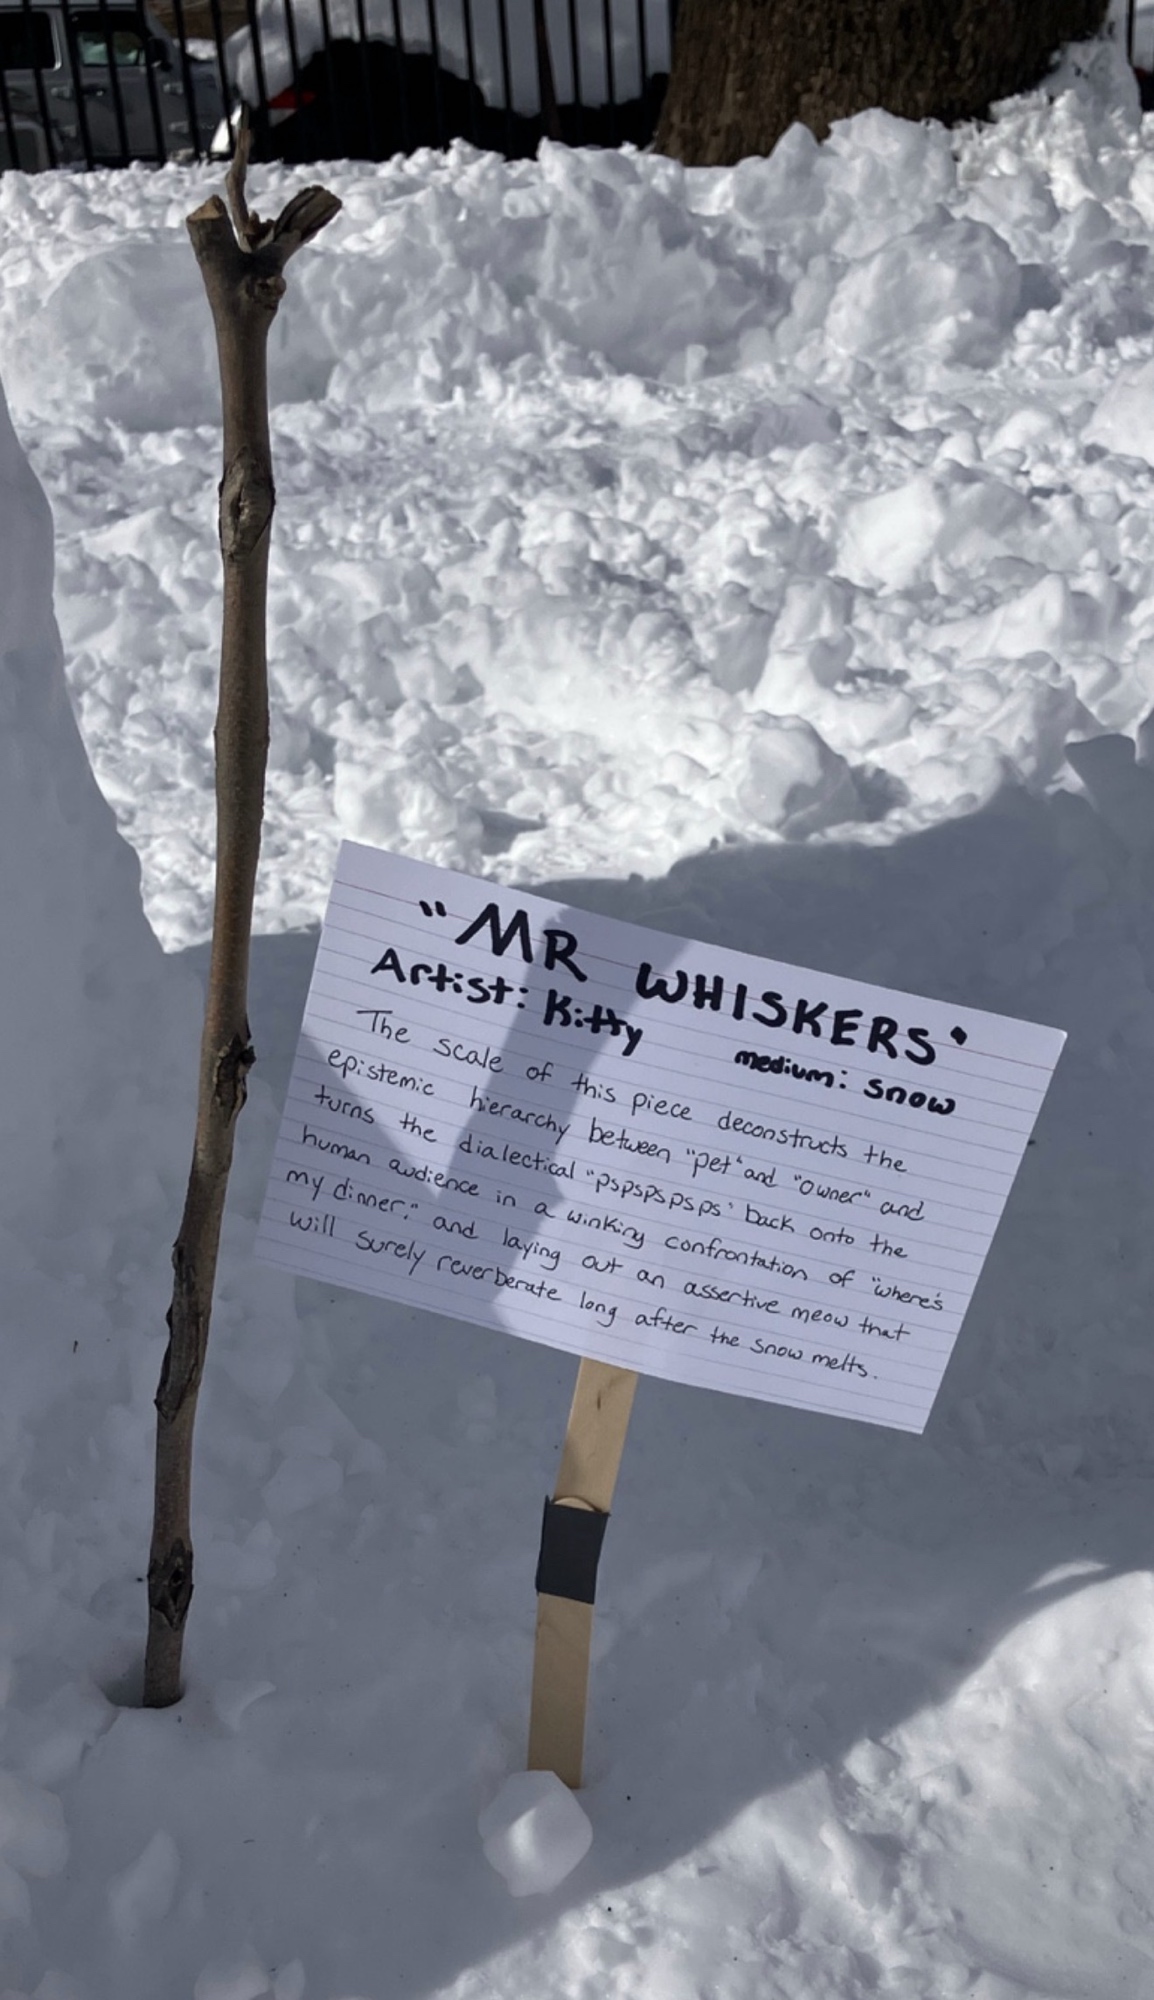 "MR WHISKERS"
Artist: Kitty
medium: snow
The scale of this piece deconstructs the
epistemic hierarchy between "pet" and "owner" and
turns the dialectical "pspspspsps" back onto the
human audience in a winking confrontation of "where's
my dinner?" and laying out an assertive meow that
will surely reverberate long after the snow melts.